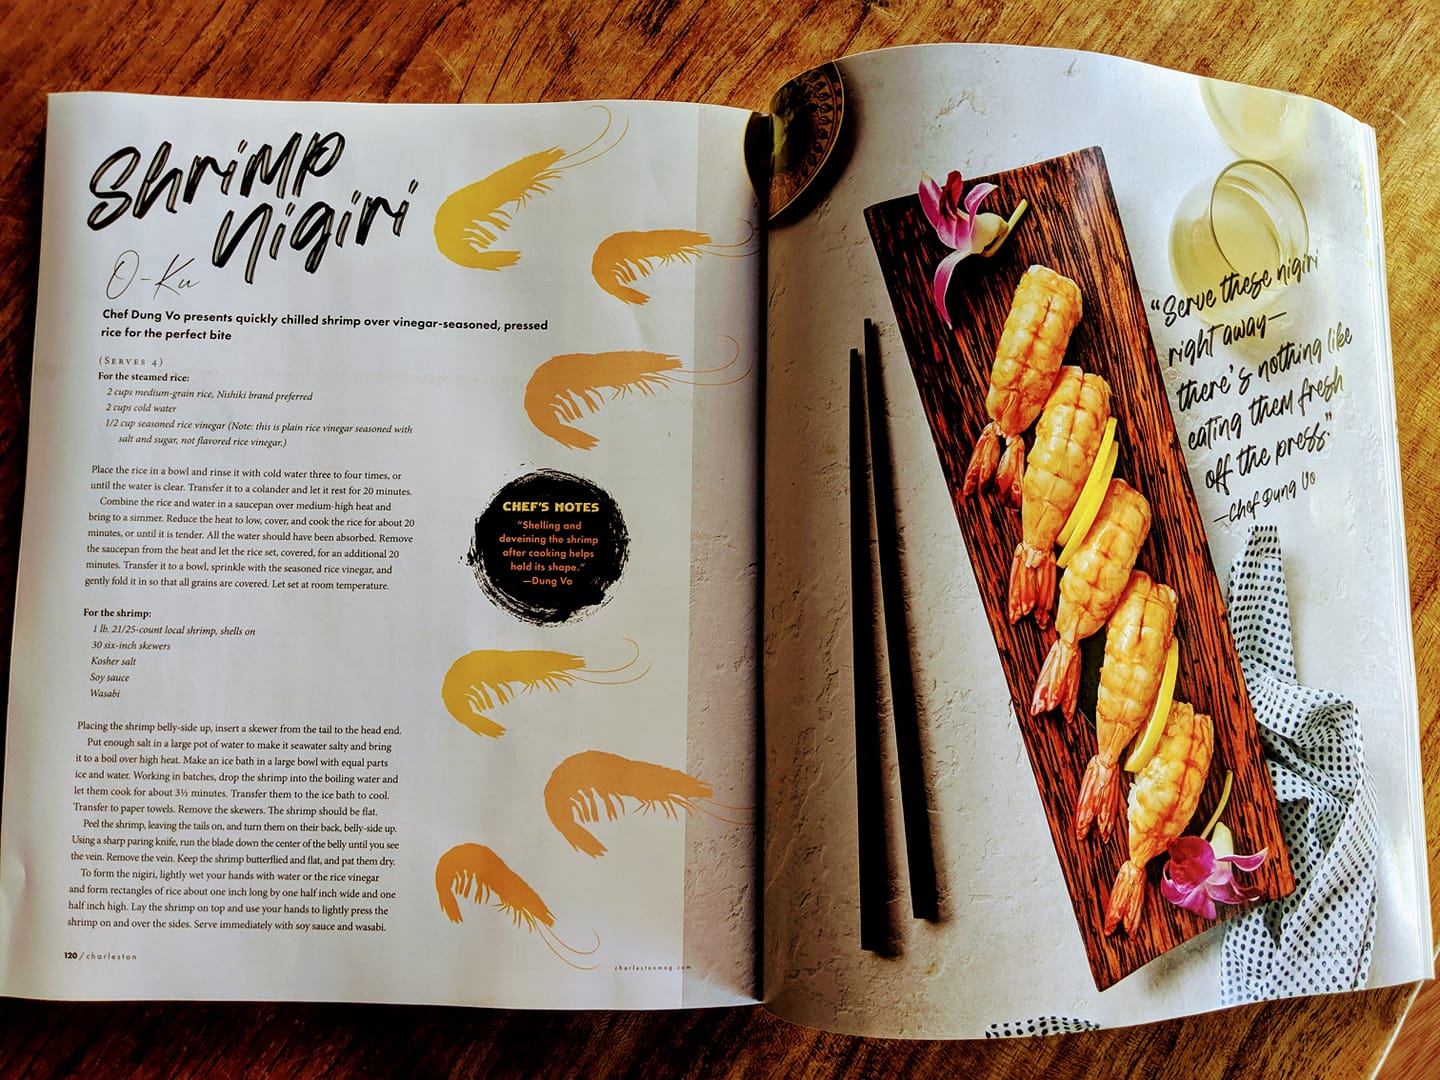 Shrimp
Nigiri
O-Ku
Chef Dung Vo presents quickly chilled shrimp over vinegar-seasoned, pressed
rice for the perfect bite
(Serves 4)
For the steamed rice:
2 cups medium-grain rice, Nishiki brand preferred
2 cups cold water
1/2 cup seasoned rice vinegar (Note: this is plain rice vinegar seasoned with
salt and sugar, not flavored rice vinegar.)
Place the rice in a bowl and rinse it with cold water three to four times, or
until the water is clear. Transfer it to a colander and let it rest for 20 minutes.
Combine the rice and water in a saucepan over medium-high heat and
bring to a simmer. Reduce the heat to low, cover, and cook the rice for about 20
minutes, or until it is tender. All the water should have been absorbed. Remove
the saucepan from the heat and let the rice set, covered, for an additional 20
minutes. Transfer it to a bowl, sprinkle with the seasoned rice vinegar, and
gently fold it in so that all grains are covered. Let set at room temperature.
For the shrimp:
1 lb. 21/25-count local shrimp, shells on
30 six-inch skewers
Kosher salt
Soy sauce
Wasabi
Placing the shrimp belly-side up, insert a skewer from the tail to the head end.
Put enough salt in a large pot of water to make it seawater salty and bring
it to a boil over high heat. Make an ice bath in a large bowl with equal parts
ice and water. Working in batches, drop the shrimp into the boiling water and
let them cook for about 3½ minutes. Transfer them to the ice bath to cool.
Transfer to paper towels. Remove the skewers. The shrimp should be flat.
Peel the shrimp, leaving the tails on, and turn them on their back, belly-side up.
Using a sharp paring knife, run the blade down the center of the belly until you see
the vein. Remove the vein. Keep the shrimp butterflied and flat, and pat them dry.
To form the nigiri, lightly wet your hands with water or the rice vinegar
and form rectangles of rice about one inch long by one half inch wide and one
half inch high. Lay the shrimp on top and use your hands to lightly press the
shrimp on and over the sides. Serve immediately with soy sauce and wasabi.
CHEF'S NOTES
"Shelling and
deveining the shrimp
after cooking helps
hold its shape."
—Dung Vo
120 / charleston
charlestonmag.com
"Serve these nigiri
right away—
there's nothing like
eating them fresh
off the press."
—Chef Dung Vo